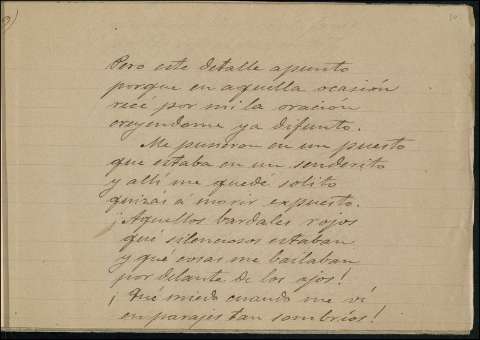 Pero este detalle apunto
porque en aquella ocasión
recé por mi la oración
creyendome ya difunto.
Me pusieron en un puesto
que estaba en un senderito
y allí me quedé solito
quizás á morir expuesto.
¡Aquellos bardales rojos
qué silenciosos estaban
y qué cosas me bailaban
por delante de los ojos!
¡Qué miedo cuando me ví
en parajes tan sombríos!